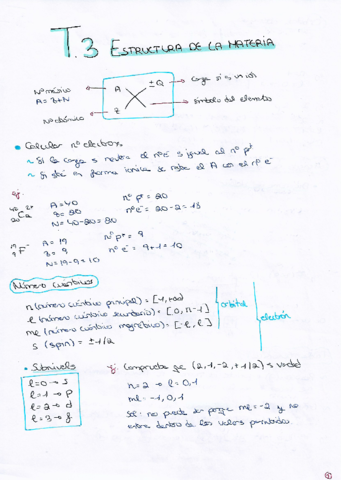 T.3 ESTRUCTURA DE LA MATERIA
Nº másico
A = Z+N
Nº atómico
A
Z
X
±Q
Carga si es un ión
símbolo del elemento
• Calcular nº electrones
~ Si la carga es neutra el nº e⁻ es igual al nº p⁺
~ Si está en forma iónica se resta el A con el nº e⁻
ej:
⁴⁰₂₀Ca²⁺
A = 40
Z = 20
N = 40-20 = 20
nº p⁺ = 20
nº e⁻ = 20-2 = 18
¹⁹₉F⁻
A = 19
Z = 9
N = 19-9 = 10
nº p⁺ = 9
nº e⁻ = 9+1 = 10
Números cuánticos
n (número cuántico principal) = [1, +∞)
l (número cuántico secundario) = [0, n-1]
ml (número cuántico magnético) = [-l, l]
s (spin) = ±1/2
orbital
electrón
• Subniveles
l=0 → s
l=1 → p
l=2 → d
l=3 → f
ej: Comprueba que (2,1,-2,+1/2) es verdad
n=2 → l=0,1
ml = -1,0,1
Sol: no puede ser porque ml=-2 y no
entra dentro de los valores permitidos